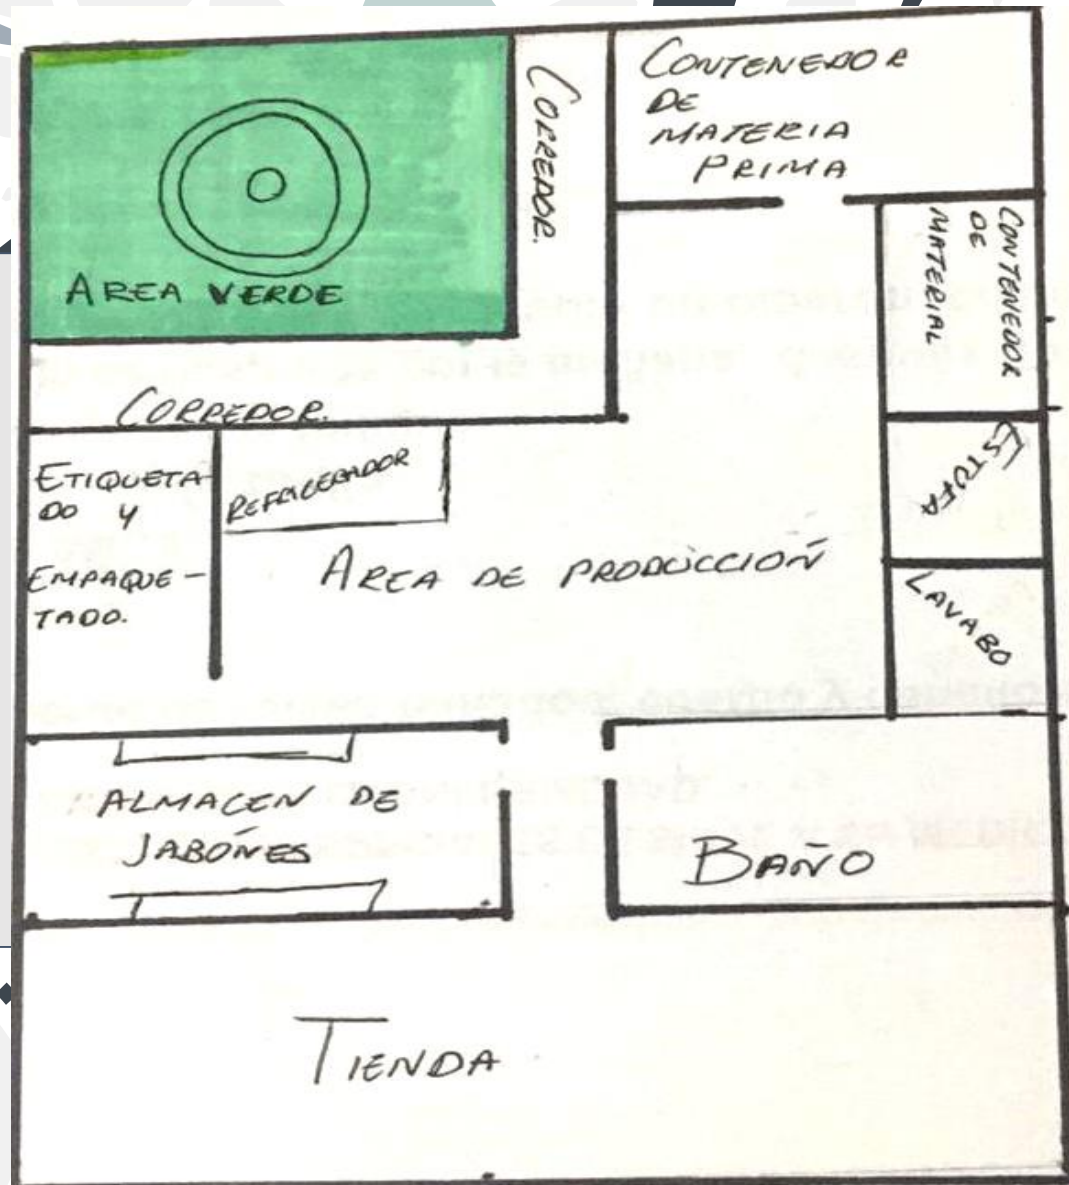 CORREDOR.
CONTENEDOR
DE
MATERIA
PRIMA
AREA VERDE
CONTENEDOR
DE
MATERIAL
CORREDOR.
ETIQUETA-
DO Y
EMPAQUE-
TADO.
REFRIGERADOR
ESTUFA
AREA DE PRODUCCIÓN
LAVABO
ALMACEN DE
JABÓNES
BAÑO
TIENDA